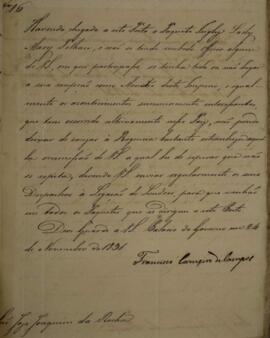 Havendo chegado a este Porto o Paquete Inglez Lady
Mary Pelham, e não se tendo recebido Officio algum
de V.S. em que participasse se tinha tido ou não lugar
a sua recepção como deste Imperio, e igual-
mente os acontecimentos summamente interessantes,
que tem occorrido ultimamente nesse Paiz, não podia
deixar de causar á Regencia bastante estranheza aquel-
la ommissão de V.S. a qual he de esperar que não
se repita, devendo V.S. enviar regularmente os seus
Despachos á Legação de Londres para que venhão
em todos os Paquetes que se dirigem a este Porto.
Deos Guarde a V.S. Palacio do Governo em 24
de Novembro de 1831
Francisco Carneiro de Campos
Joze Joaquim da Rocha